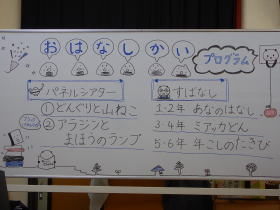 おはなしかい
プログラム
パネルシアター
①どんぐりと山ねこ
②アラジンと
まほうのランプ
すばなし
1・2年 あなのはなし
3・4年 ミアッカどん
5・6年 年こしのたきび